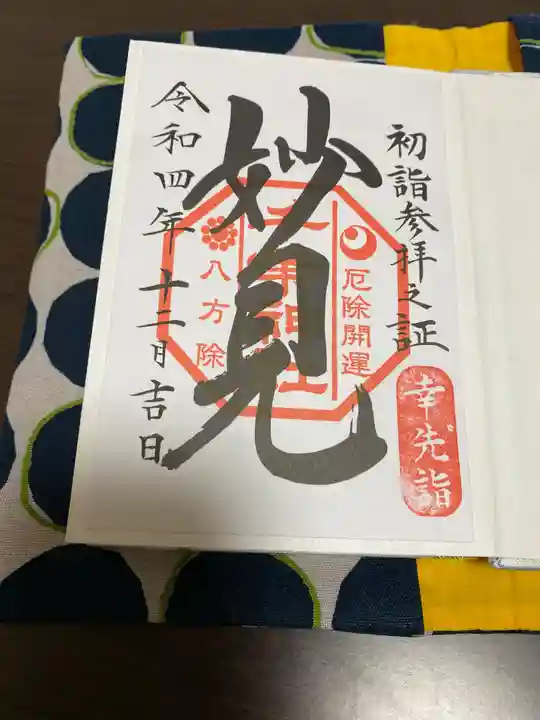 初詣参拝之証
幸先詣
妙見
厄除開運
八方除
令和四年十二月吉日